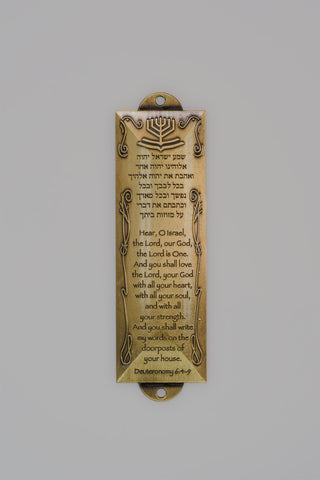 שמע ישראל יהוה
אלוהינו יהוה אחד
ואהבת את יהוה אלהיך
בכל לבבך ובכל
נפשך ובכל מאדך
וכתבתם את דברי
על מזוזות ביתך
Hear, O Israel,
the Lord, our God,
the Lord is One.
And you shall love
the Lord, your God
with all your heart,
with all your soul,
and with all
your strength.
And you shall write
my words on the
doorposts of
your house.
Deuteronomy 6:4-9